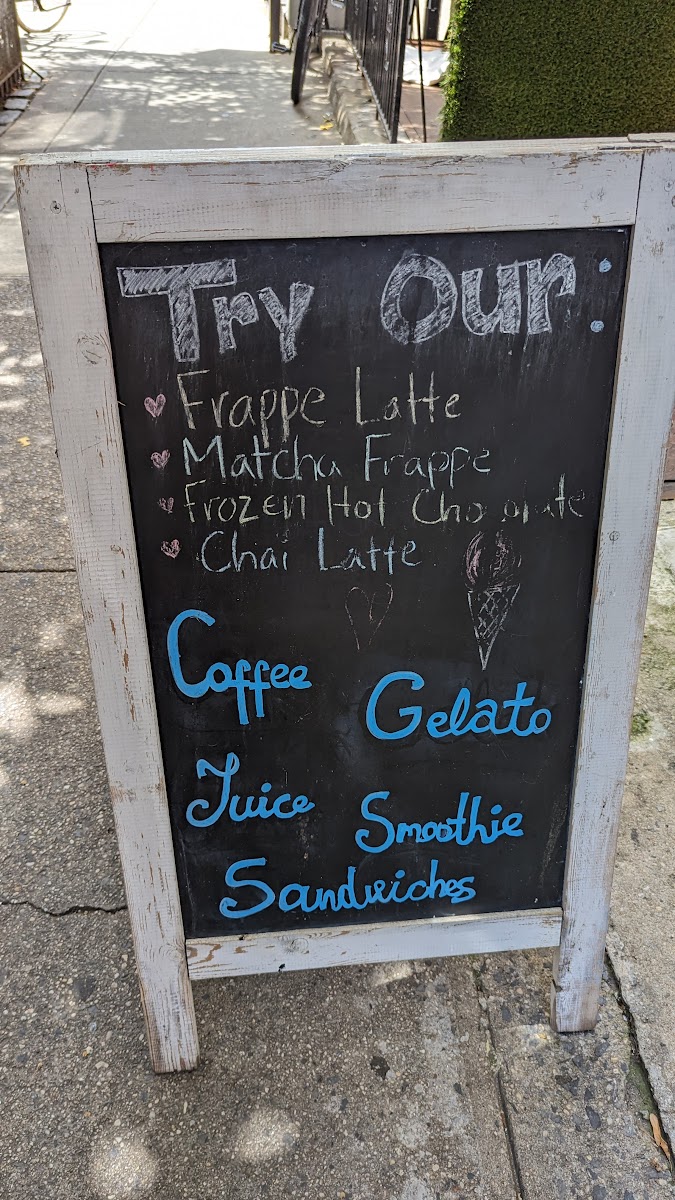 Try Our:
Frappe Latte
Matcha Frappe
Frozen Hot Chocolate
Chai Latte
Coffee
Gelato
Juice
Smoothie
Sandwiches